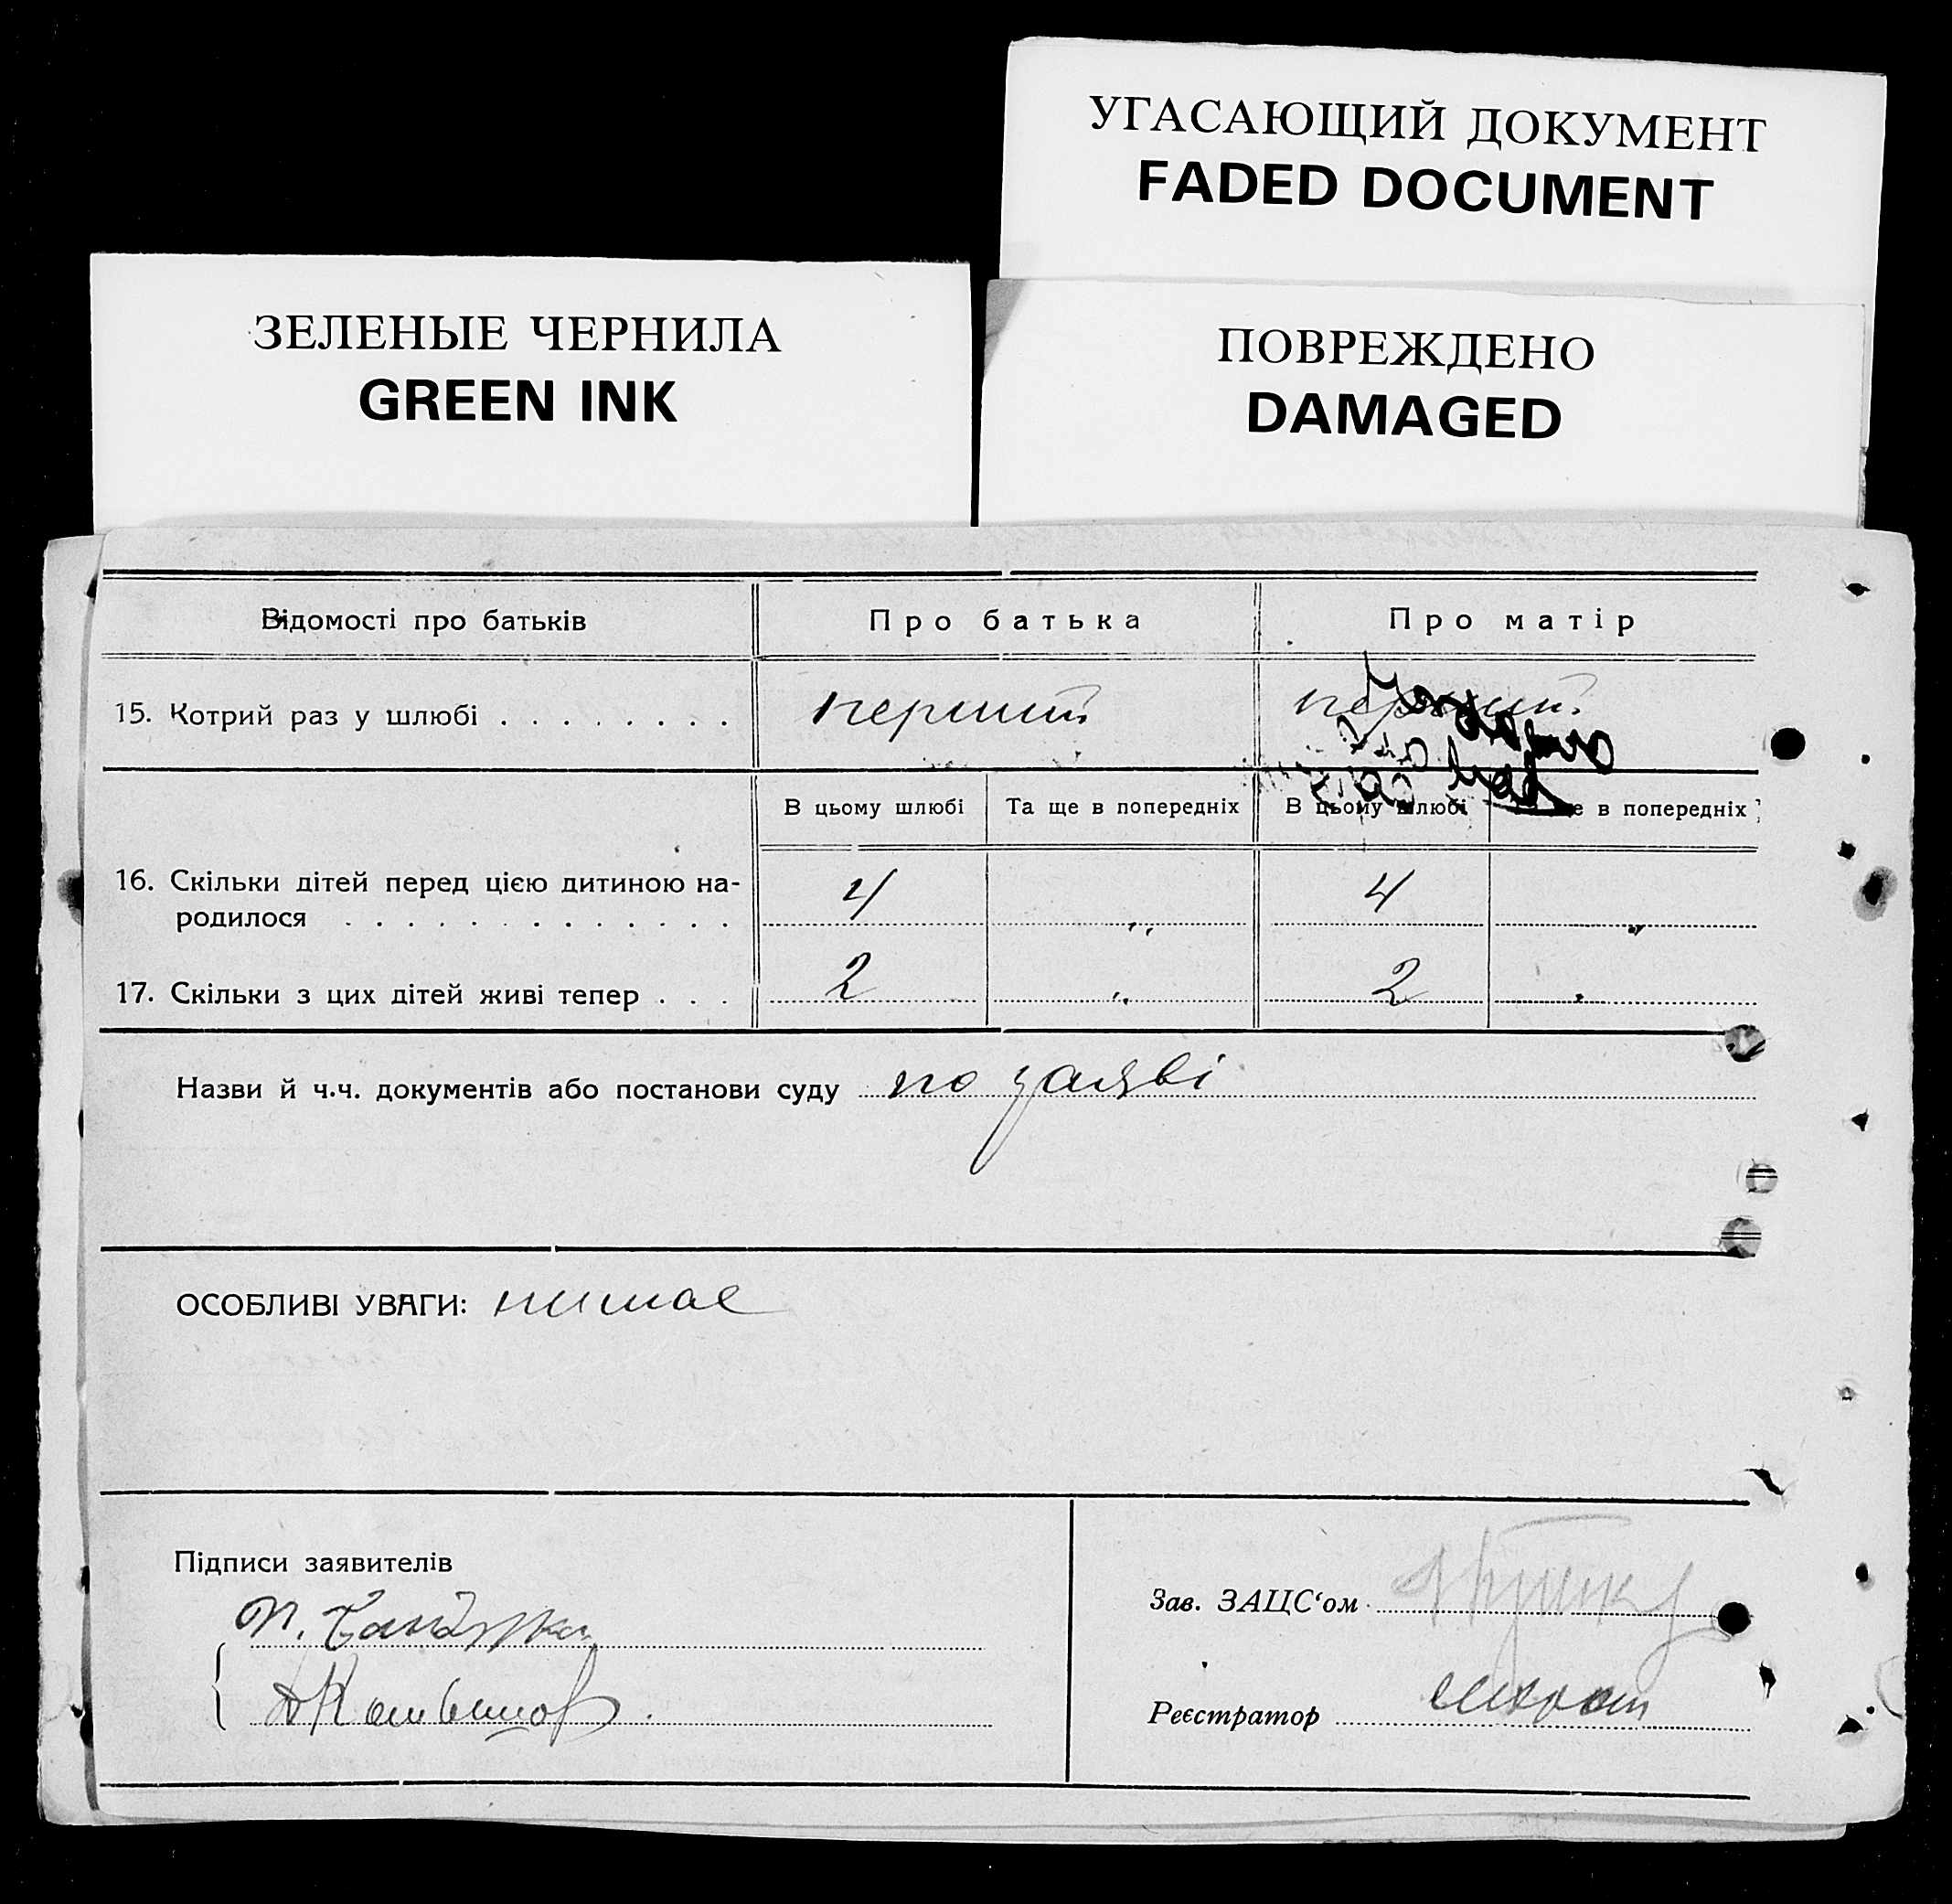 УГАСАЮЩИЙ ДОКУМЕНТ
FADED DOCUMENT
ЗЕЛЕНЫЕ ЧЕРНИЛА
GREEN INK
ПОВРЕЖДЕНО
DAMAGED
Відомості про батьків Про батька Про матір
15. Котрий раз у шлюбі . . . . . . . . перший перший
В цьому шлюбі Та ще в попередніх В цьому шлюбі е в попередніх
16. Скільки дітей перед цією дитиною на-
родилося . . . . . . . . . . . . . 4 " 4 "
17. Скільки з цих дітей живі тепер . . . 2 " 2 "
Назви й ч.ч. документів або постанови суду по заяві
ОСОБЛИВІ УВАГИ: нимае
Підписи заявителів
Зав. ЗАЦС'ом
Реєстратор